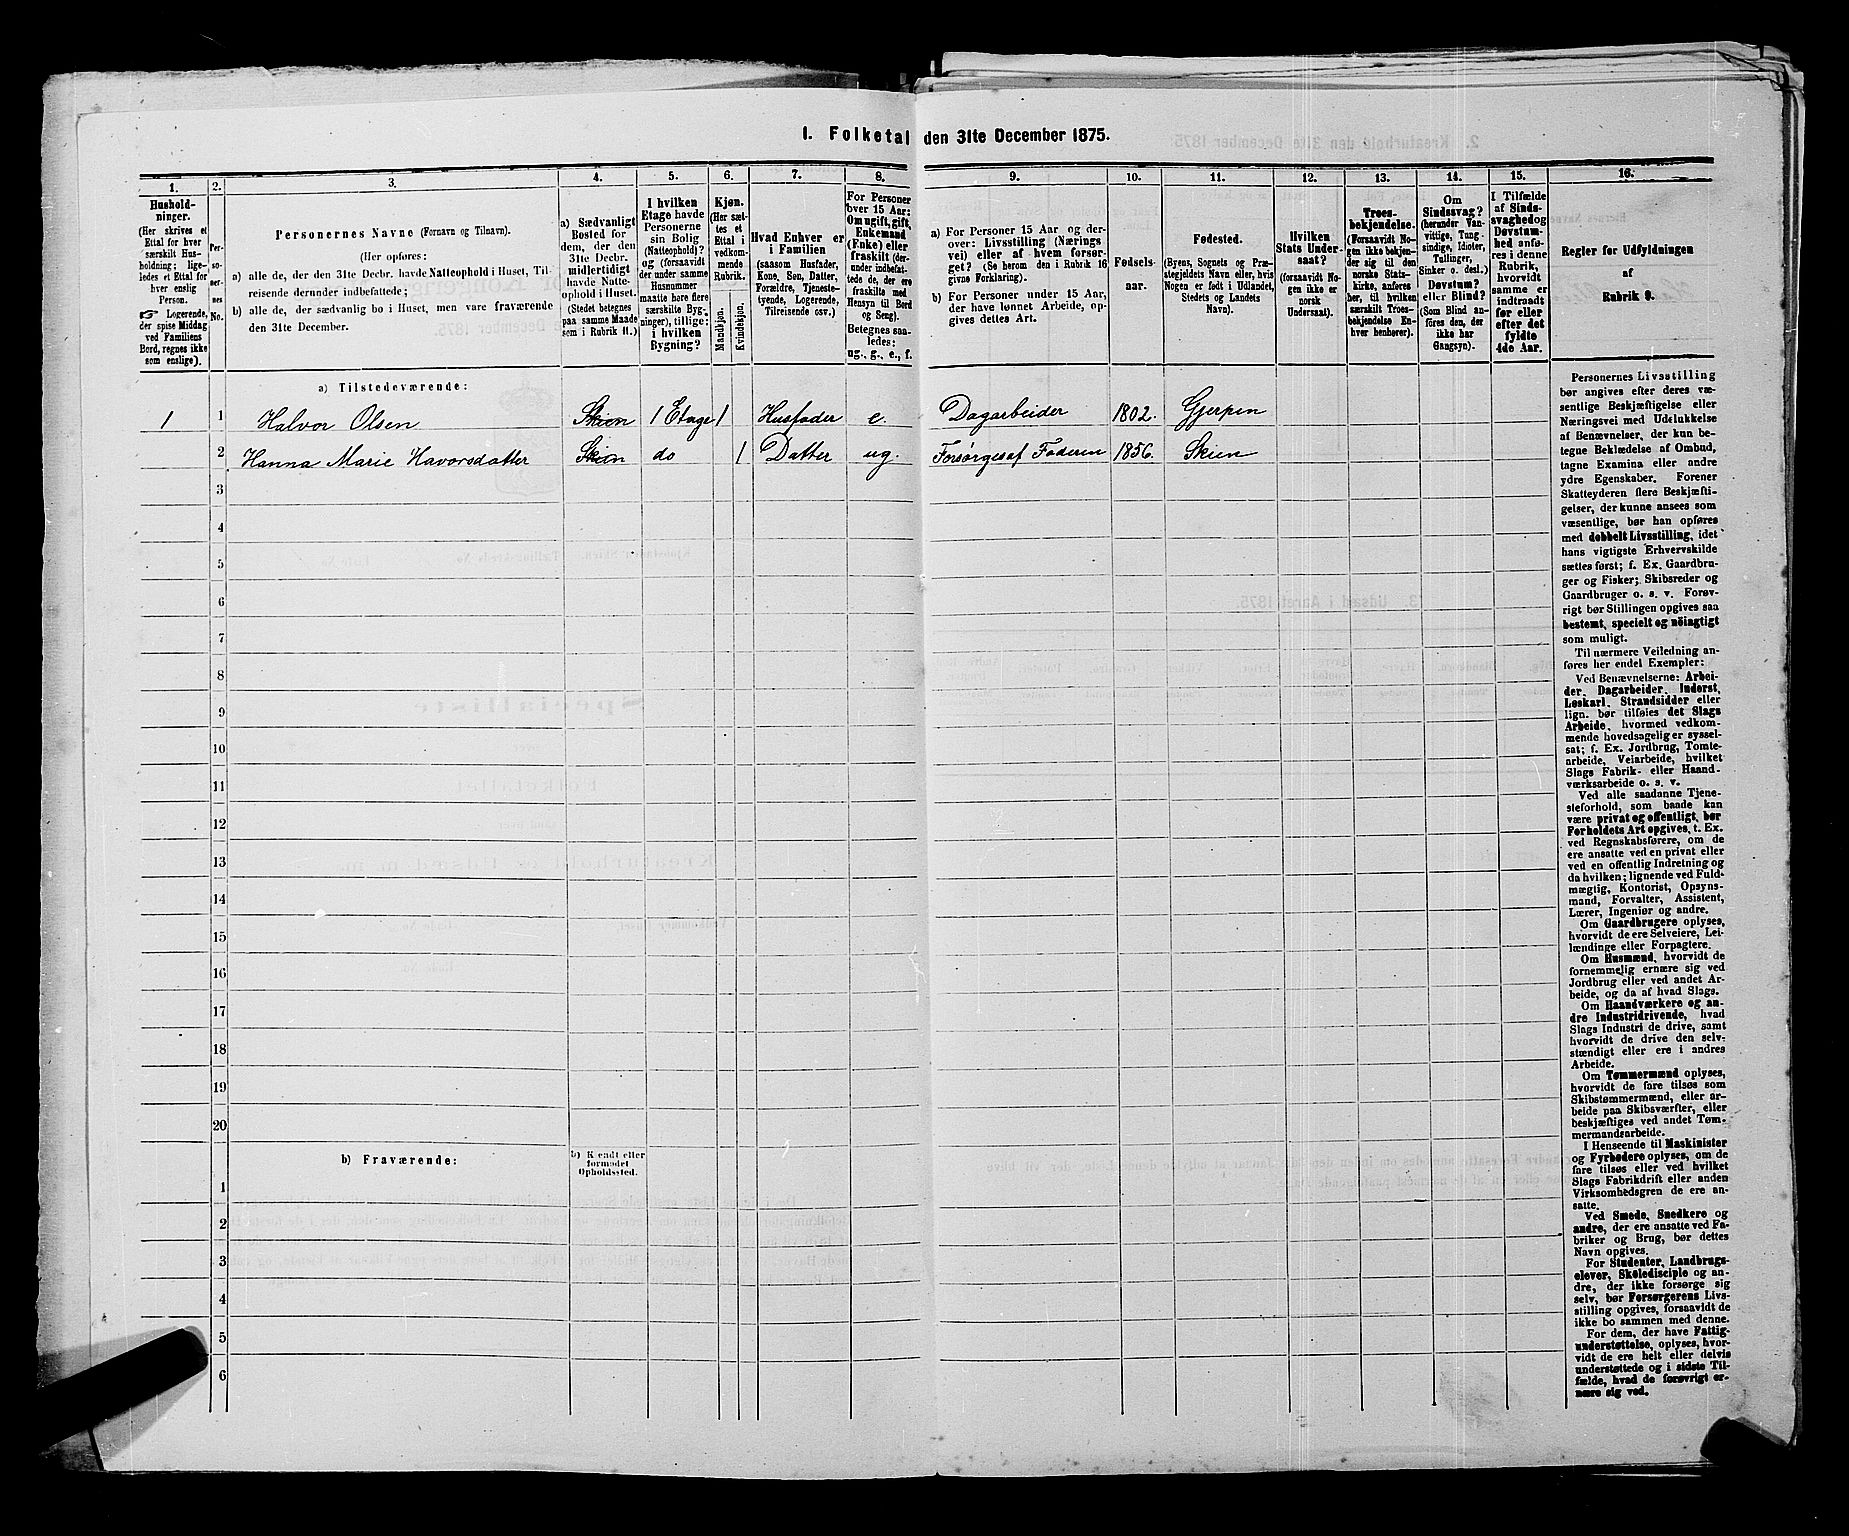 I. Folketal den 31te December 1875.
1.
2.
3.
4.
5.
6.
7.
8.
9.
10.
11.
12.
13.
14.
15.
16.
Hushold-
ninger.
(Her skrives et
Ettal for hver
særskilt Hus-
holdning; lige-
ledes et Ettal for
hver enslig
Person.
☞ Logerende,
der spise Middag
ved Familiens
Bord, regnes ikke
som enslige).
Per-
so-
ner-
nes
No.
Personernes Navne (Fornavn og Tilnavn).
(Her opføres:
a) alle de, der den 31te Decbr. havde Natteophold i Huset, Til-
reisende derunder indbefattede;
b) alle de, der sædvanlig bo i Huset, men vare fraværende
den 31te December.
a) Sædvanligt
Bosted for
dem, der den
31te Decbr.
midlertidigt
havde Natte-
ophold i Huset.
(Stedet betegnes
paa samme Maade
som i Rubrik 11.)
I hvilken
Etage havde
Personerne
sin Bolig
(Natteophold)?
og (forsaavidt
der under samme
Husnummer
maatte høre flere
særskilte Byg-
ninger), tillige:
i hvilken
Bygning?
Kjøn.
(Her sæt-
tes et
Ettal i
vedkom-
mende
Rubrik.
Mandkjøn.
Kvindekjøn.
Hvad Enhver er
i Familien
(saasom Husfader,
Kone, Søn, Datter,
Forældre, Tjeneste-
tyende, Logerende,
Tilreisende osv.)
For Personer
over 15 Aar:
Om ugift, gift,
Enkemand
(Enke) eller
fraskilt (der-
under indbefat-
tede de, der ere
fraskilte med
Hensyn til Bord
og Seng).
Betegnes saa-
ledes:
ug., g., e., f.
a) For Personer 15 Aar og der-
over: Livsstilling (Nærings
vei) eller af hvem forsør-
get? (Se herom den i Rubrik 16
givne Forklaring).
b) For Personer under 15 Aar,
der have lønnet Arbeide, op-
gives dettes Art.
Fødsels-
aar.
Fødested.
(Byens, Sognets og Præ-
stegjeldets Navn eller, hvis
Nogen er født i Udlandet,
Stedets og Landets
Navn).
Hvilken
Stats Under-
saat?
(forsaavidt No-
gen ikke er
norsk
Undersaat).
Troes-
bekjendelse.
(Forsaavidt No-
gen ikke bekjen-
der sig til den
norske Stats-
kirke, anføres
her, til hvilken
særskilt Troes-
bekjendelse En-
hver henhører).
Om
Sindssvag?
(herunder Van-
vittige, Tung-
sindige, Idioter,
Tullinger,
Sinker o. desl.)
Døvstum?
eller Blind?
(Som Blind an-
føres den, der
ikke har
Gangsyn).
I Tilfælde
af Sinds-
svaghed og
Døvstum-
hed anfø-
res i denne
Rubrik,
hvorvidt
samme er
indtraadt
før eller
efter det
fyldte
4de Aar.
Regler for Udfyldningen
af
Rubrik 9.
a) Tilstedeværende:
1 1 Halvor Olsen Skien 1 Etage 1 Husfader e. Dagarbeider 1802. Gjerpen
2 Hanna Marie Havorsdatter Skien do 1 Datter ug. Forsørges af Faderen 1856. Skien
3
4
5
6
7
8
9
10
11
12
13
14
15
16
17
18
19
20
b) Fraværende:
b) Kjendt eller
formodet
Opholdssted.
1
2
3
4
5
6
Personernes Livsstilling
bør angives efter deres væ-
sentlige Beskjæftigelse eller
Næringsvei med Udelukkelse
af Benævnelser, der kun be-
tegne Beklædelse af Ombud,
tagne Examina eller andre
ydre Egenskaber. Forener
Skatteyderen flere Beskjæfti-
gelser, der kunne ansees som
væsentlige, bør han opføres
med dobbelt Livsstilling, idet
hans vigtigste Erhvervskilde
sættes først; f. Ex. Gaardbru-
ger og Fisker; Skibsreder og
Gaardbruger o. s. v. Forøv-
rigt bør Stillingen opgives saa
bestemt, specielt og nöiagtigt
som muligt.
Til nærmere Veiledning an-
føres her endel Exempler:
Ved Benævnelserne: Arbei-
der, Dagarbeider, Inderst,
Løskarl, Strandsidder eller
lign. bør tilføies det Slags
Arbeide, hvormed vedkom-
mende hovedsagelig er syssel-
sat; f. Ex. Jordbrug, Tomte-
arbeide, Veiarbeide, hvilket
Slags Fabrik- eller Haand-
værksarbeide o. s. v.
Ved alle saadanne Tjene-
steforhold, som baade kan
være privat og offentligt, bør
Forholdets Art opgives, t. Ex.
ved Regnskabsførere, om de
ere ansatte ved en privat eller
ved en offentlig Indretning og
da hvilken; lignende ved Fuld-
mægtig, Kontorist, Opsyns-
mand, Forvalter, Assistent,
Lærer, Ingeniør og andre.
Om Gaardbrugere oplyses,
hvorvidt de ere Selveiere, Lei-
lændinge eller Forpagtere.
Om Husmænd, hvorvidt de
fornemmelig ernære sig ved
Jordbrug eller ved andet Ar-
beide, og da af hvad Slags.
Om Haandværkere og an-
dre Industridrivende, hvad
Slags Industri de drive, samt
hvorvidt de drive den selv-
stændigt eller ere i andres
Arbeide.
Om Tømmermænd oplyses,
hvorvidt de fare tilsøs som
Skibstømmermænd, eller ar-
beide paa Skibsværfter, eller
beskjæftiges ved andet Tøm-
mermandsarbeide.
I Henseende til Maskinister
og Fyrbødere oplyses, om de
fare tilsøs eller ved hvilket
Slags Fabrikdrift eller anden
Virksomhedsgren de ere an-
satte.
Ved Smede, Snedkere og
andre, der ere ansatte ved Fa-
briker og Brug, bør dettes
Navn opgives.
For Studenter, Landbrugs-
elever, Skoledisciple og an-
dre, der ikke forsørge sig
selv, bør Forsørgerens Livs-
stilling opgives, forsaavidt de
ikke bo sammen med denne.
For dem, der have Fattig-
understøttelse, oplyses, hvor-
vidt de ere helt eller delvis
understøttede og i sidste Til-
fælde, hvad de forøvrigt er-
nære sig ved.